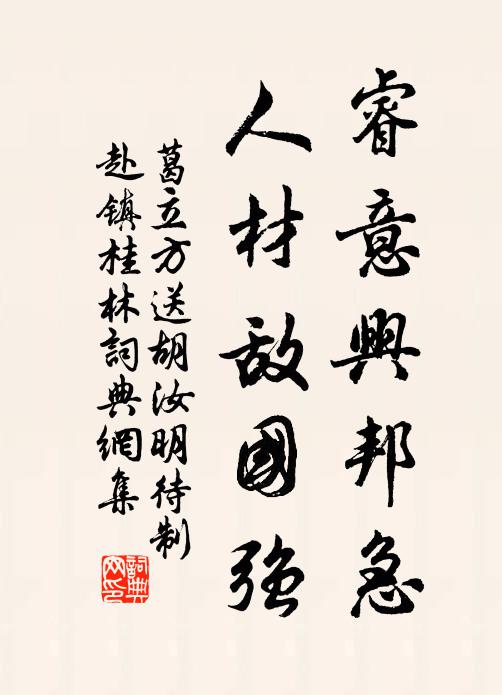 睿意興邦急
人材敵國強
葛立方送胡汝明待制
赴鎮桂林詞典網集
詞典
网印